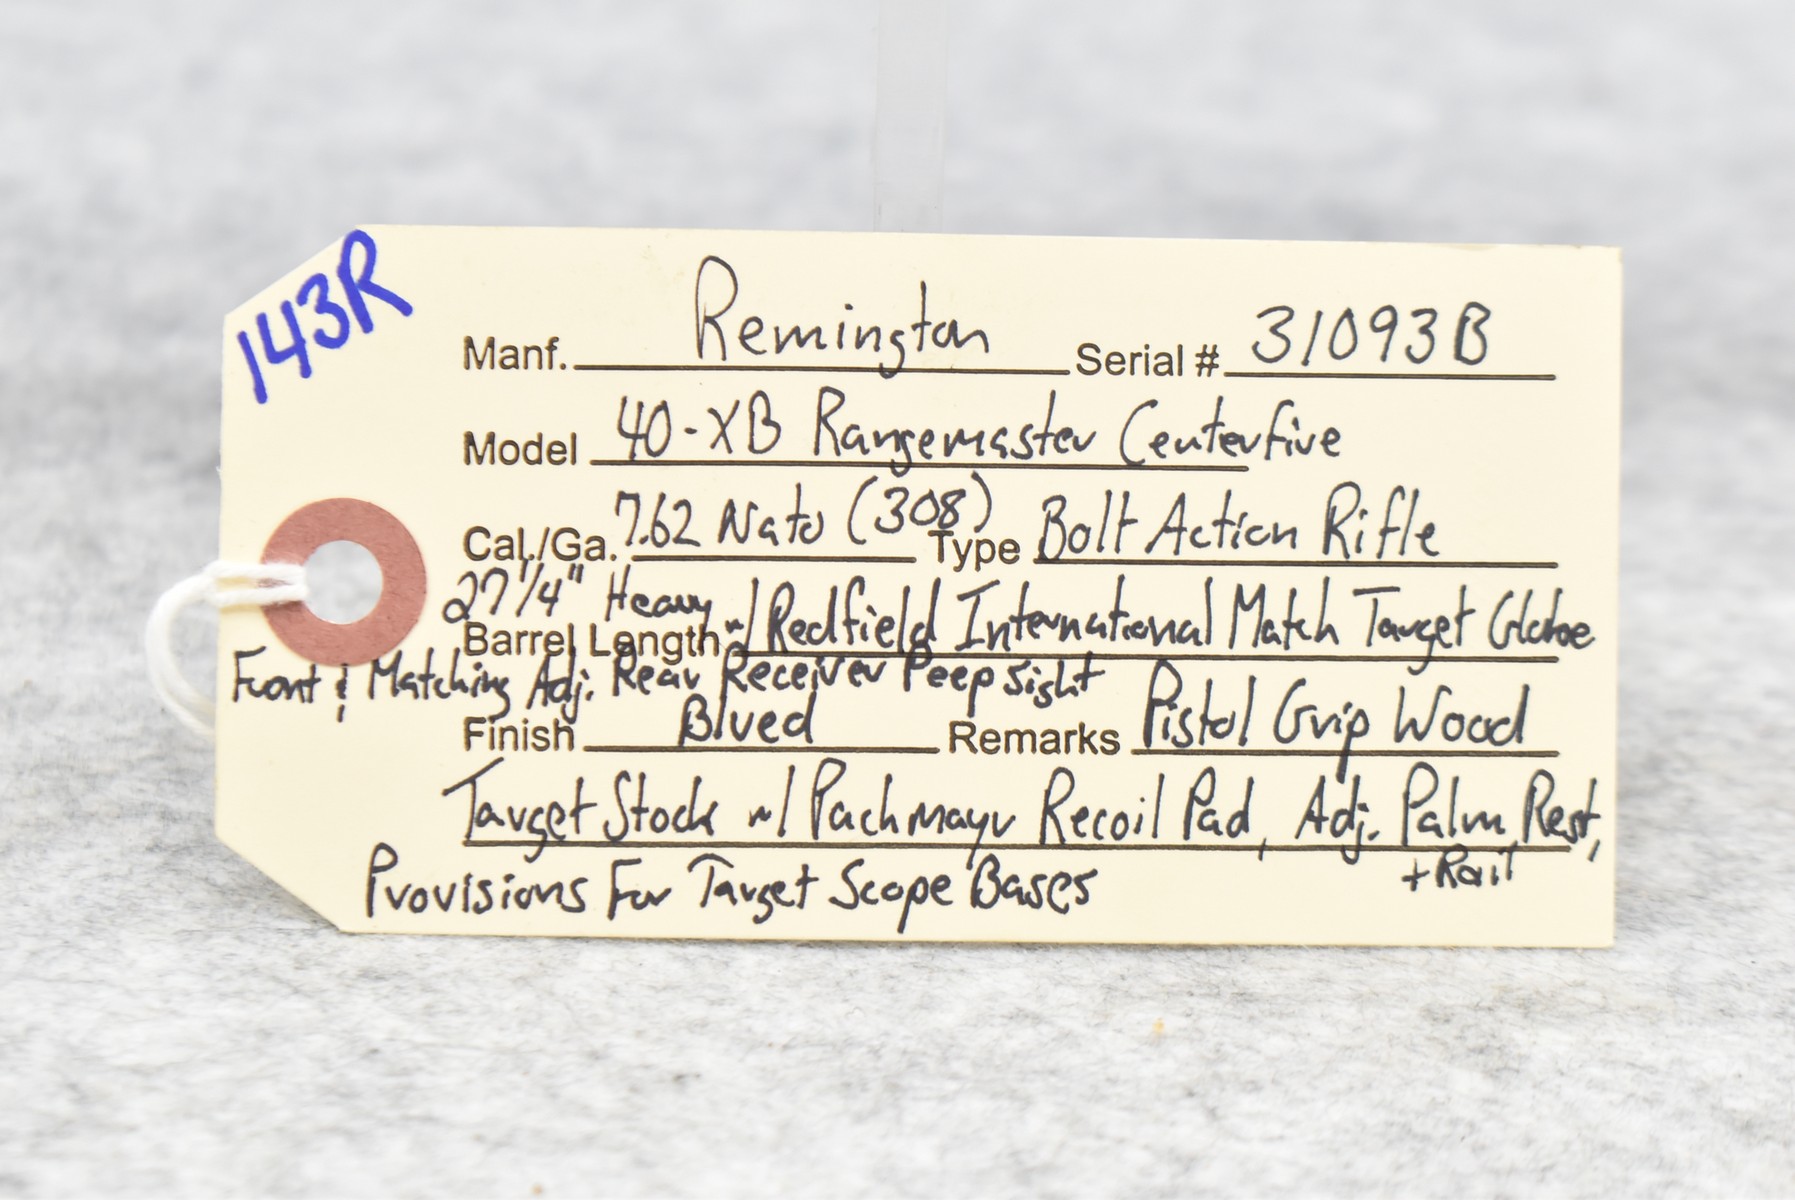 143R
Manf. Remington Serial # 31093B
Model 40-XB Rangemaster Centerfire
Cal./Ga. 7.62 Nato (308) Type Bolt Action Rifle
Barrel Length 27 1/4" Heavy w/ Redfield International Match Target Globe
Front & Matching Adj. Rear Receiver Peep Sight
Finish Blued Remarks Pistol Grip Wood
Target Stock w/ Pachmayr Recoil Pad, Adj. Palm Rest,
+ Rail
Provisions For Target Scope Bases